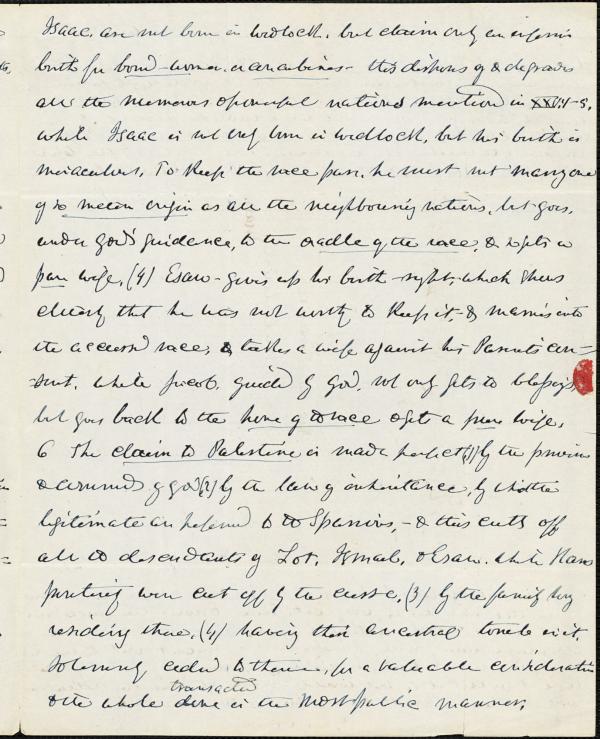 Isaac, are not born in wedlock, but claim only an inferior
birth from bond-women or concubines - this disposes of & degrades
all the numerous & powerful nations mentioned in XXV.1-5.
while Isaac is not only born in wedlock, but his birth is
miraculous. To keep the race pure, he must not marry one
of so mean origin as are the neighbouring nations, but goes,
under God's guidance, to the cradle of the race, & gets a
pure wife. (4) Esau - gives up his birth-right, which shews
clearly that he was not worthy to keep it, & marries into
the accursed race, & takes a wife against his Parents con-
sent. while Jacob, guided by God, not only gets the blessing,
but goes back to the home of the race & gets a pure wife.
6 The claim to Palestine is made perfect (1) by the promise
& covenant of God (2) by the law of inheritance, by which the
legitimate are preferred to the Spurious, - & this cuts off
all the descendants of Lot, Ismael, & Esau. while Hams
posterity were cut off by the curse. (3) by the family
residing there, (4) having their ancestral tombs in it
solemnly ceded to them, for a valuable consideration
& the whole transacted done in the most public manner.